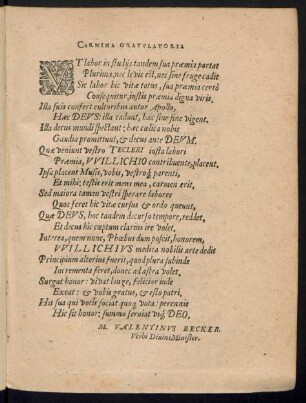 CARMINA GRATULATORIA
VT labor in studijs tandem sua præmia portat
Plurima, nec levis est, nec sine fruge cadit
Sic labor hic vitæ totus, sua præmia certò
Consequitur, justis præmia digna viris,
Illa suis confert cultoribus autor Apollo,
Hæc DEVS: illa cadunt, hæc sine fine vigent.
Illa decus mundi spectant; hæc cælica nobis
Gaudia promittunt, & decus ante DEVM.
Quæ veniunt vestro TECLERI justa labori
Præmia, VVILLICHIO contribuente, placent,
Ipsa placent Musis, vobis, vestroq; parenti,
Et mihi; testis erit mens mea, carmen erit,
Sed majora tamen vestri sperare labores
Quos feret hic vitæ cursus & ordo queunt,
Quæ DEVS, hoc tandem decurso tempore, reddet,
Et decus hic cæptum clarius ire volet,
Interea, quem nunc, Phœbus dum poscit, honorem,
VVILLICHIVS medica nobilis arte dedit
Principium alterius fuerit, quod plura subinde
Incrementa feret, donec ad astra volet,
Surgat honor: vivat longe, felicior inde
Exeat: & vobis gratus, & esto patri,
His sua qui votis sociat quoq; vota: perennis
Hic sic honor: summo serviat usq; DEO,
M. VALENTINVS BECKER.
Verbi Divini Minister.